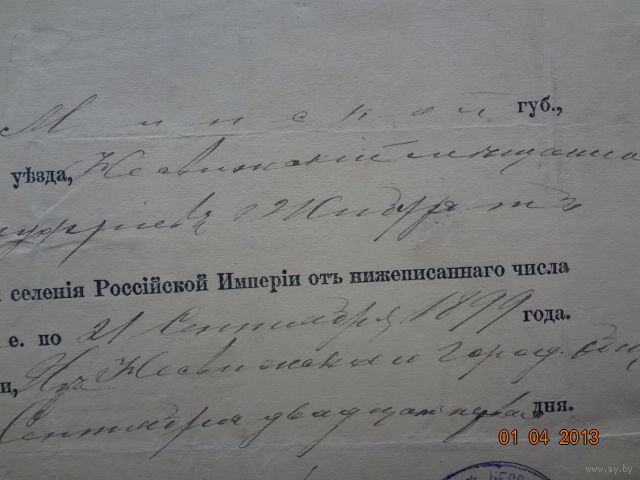 Минской губ.,
уѣзда, Несвижскій мѣщанин
Жибртъ
селенія Россійской Имперіи отъ нижеписаннаго числа
е. по 21 Сентября 1899 года.
и, Изъ Несвижская город.
Сентября двадцать перва дня.
01 04 2013
www.ay.by